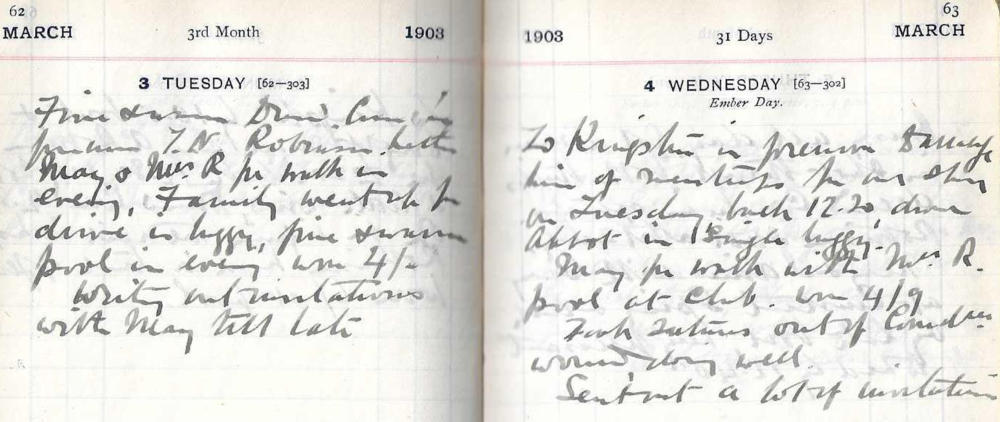 62
MARCH 3rd Month 1903
3 TUESDAY [62—303]
Fine & warm
T. N. Robinson
May & Mrs R for walk in
evening, Family went for
drive in buggy, fine & warm
pool in evening won 4/-
Writing out invitations
with May till late
63
1903 31 Days MARCH
4 WEDNESDAY [63—302]
Ember Day.
To Kingston in
of for our
on Tuesday, back 12.20, drove
Abbot in single buggy.
May for walk with Mrs R.
pool at Club. won 4/9
Took sutures out of
wound doing well.
Sent out a lot of invitations